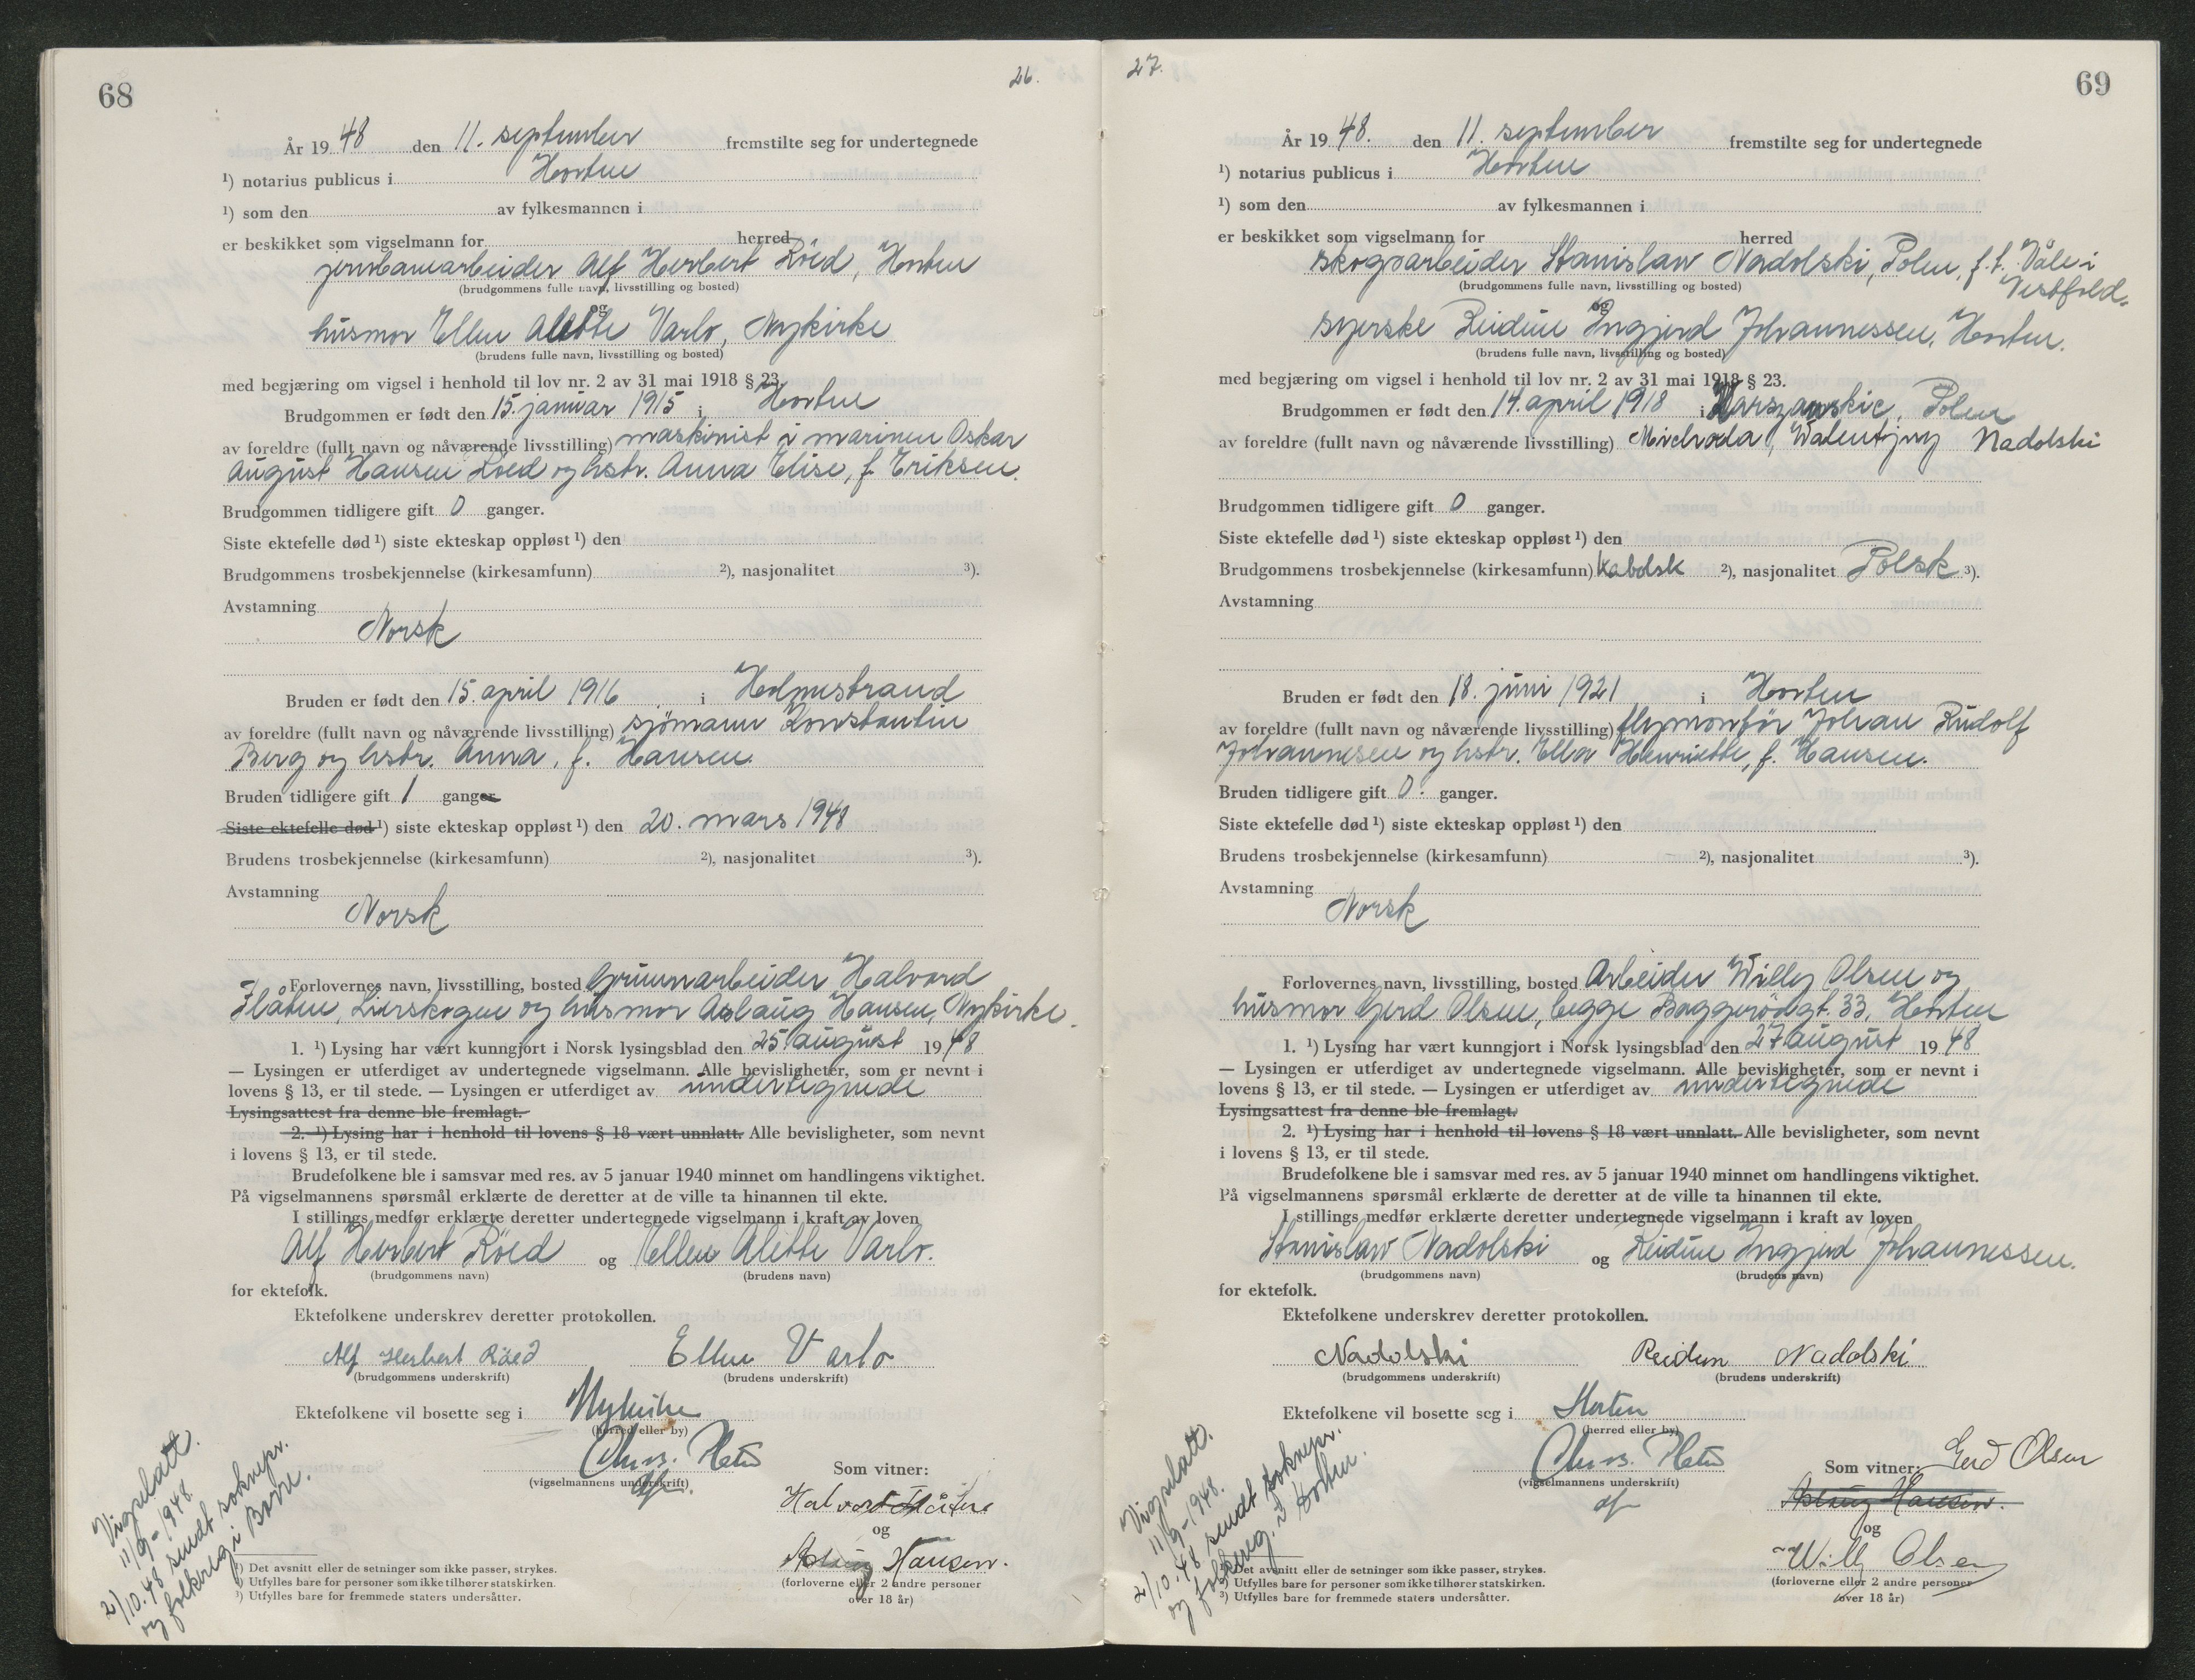 68
26.
År 19 48 den 11. september fremstilte seg for undertegnede
¹) notarius publicus i Horten
¹) som den av fylkesmannen i
er beskikket som vigselmann for herred
jernbanearbeider Alf Herbert Röed, Horten
(brudgommens fulle navn, livsstilling og bosted)
og
husmor Ellen Alette Varlo, Nykirke
(brudens fulle navn, livsstilling og bosted)
med begjæring om vigsel i henhold til lov nr. 2 av 31 mai 1918 § 23.
Brudgommen er født den 15. januar 1915 i Horten
av foreldre (fullt navn og nåværende livsstilling) maskinist i marinen Oskar
August Hansen Röed og hstr. Anna Elise, f. Eriksen.
Brudgommen tidligere gift 0 ganger.
Siste ektefelle død ¹) siste ekteskap oppløst ¹) den
Brudgommens trosbekjennelse (kirkesamfunn) ²), nasjonalitet ³).
Avstamning
Norsk
Bruden er født den 15. april 1916 i Holmestrand
av foreldre (fullt navn og nåværende livsstilling) sjömann Konstantin
Berg og hstr. Anna, f. Hansen.
Bruden tidligere gift 1 ganger
Siste ektefelle død ¹) siste ekteskap oppløst ¹) den 20. mars 1948
Brudens trosbekjennelse (kirkesamfunn) ²), nasjonalitet ³).
Avstamning
Norsk
Forlovernes navn, livsstilling, bosted Grunnarbeider Halvord
Flåten, Lierskogen og husmor Aslaug Hansen, Nykirke.
1. ¹) Lysing har vært kunngjort i Norsk lysingsblad den 25 august 19 48
— Lysingen er utferdiget av undertegnede vigselmann. Alle bevisligheter, som er nevnt i
lovens § 13, er til stede. — Lysingen er utferdiget av undertegnede
Lysingsattest fra denne ble fremlagt.
2. ¹) Lysing har i henhold til lovens § 18 vært unnlatt. Alle bevisligheter, som nevnt
i lovens § 13, er til stede.
Brudefolkene ble i samsvar med res. av 5 januar 1940 minnet om handlingens viktighet.
På vigselmannens spørsmål erklærte de deretter at de ville ta hinannen til ekte.
I stillings medfør erklærte deretter undertegnede vigselmann i kraft av loven
Alf Herbert Röed og Ellen Alette Varlo.
(brudgommens navn) (brudens navn)
for ektefolk.
Ektefolkene underskrev deretter protokollen.
Alf Herbert Röed Ellen Varlo
(brudgommens underskrift) (brudens underskrift)
Ektefolkene vil bosette seg i Nykirke
(herred eller by)
(vigselmannens underskrift)
Som vitner:
Halvord Flåten
og
Aslaug Hansen.
(forloverne eller 2 andre personer
over 18 år)
Vigselatt.
11/9-1948.
2/10.48 sendt soknepr.
og folkereg i Borre.
¹) Det avsnitt eller de setninger som ikke passer, strykes.
²) Utfylles bare for personer som ikke tilhører statskirken.
³) Utfylles bare for fremmede staters undersåtter.
27.
69
År 19 48. den 11. september fremstilte seg for undertegnede
¹) notarius publicus i Horten
¹) som den av fylkesmannen i
er beskikket som vigselmann for herred
skogsarbeider Stanislaw Nadolski, Polen, f.t. Våle i
Vestfold.
(brudgommens fulle navn, livsstilling og bosted)
og
syerske Reidun Ingjerd Johannessen, Horten.
(brudens fulle navn, livsstilling og bosted)
med begjæring om vigsel i henhold til lov nr. 2 av 31 mai 1918 § 23.
Brudgommen er født den 14. april 1918 i Warszawskie, Polen
av foreldre (fullt navn og nåværende livsstilling) Nadolski
Brudgommen tidligere gift 0 ganger.
Siste ektefelle død ¹) siste ekteskap oppløst ¹) den
Brudgommens trosbekjennelse (kirkesamfunn) Katolsk ²), nasjonalitet Polsk ³).
Avstamning
Bruden er født den 18. juni 1921 i Horten
av foreldre (fullt navn og nåværende livsstilling) flymontör Johan Rudolf
Johannesen og hstr. Ella Henriette, f. Hansen.
Bruden tidligere gift 0. ganger.
Siste ektefelle død ¹) siste ekteskap oppløst ¹) den
Brudens trosbekjennelse (kirkesamfunn) ²), nasjonalitet ³).
Avstamning
Norsk
Forlovernes navn, livsstilling, bosted Arbeider Willy Olsen og
husmor Gerd Olsen, begge Baggerödgt. 33, Horten
1. ¹) Lysing har vært kunngjort i Norsk lysingsblad den 27 august 19 48
— Lysingen er utferdiget av undertegnede vigselmann. Alle bevisligheter, som er nevnt i
lovens § 13, er til stede. — Lysingen er utferdiget av undertegnede
Lysingsattest fra denne ble fremlagt.
2. ¹) Lysing har i henhold til lovens § 18 vært unnlatt. Alle bevisligheter, som nevnt
i lovens § 13, er til stede.
Brudefolkene ble i samsvar med res. av 5 januar 1940 minnet om handlingens viktighet.
På vigselmannens spørsmål erklærte de deretter at de ville ta hinannen til ekte.
I stillings medfør erklærte deretter undertegnede vigselmann i kraft av loven
Stanislaw Nadolski og Reidun Ingjerd Johannessen.
(brudgommens navn) (brudens navn)
for ektefolk.
Ektefolkene underskrev deretter protokollen.
Nadolski Reidun Nadolski
(brudgommens underskrift) (brudens underskrift)
Ektefolkene vil bosette seg i Horten
(herred eller by)
(vigselmannens underskrift)
Som vitner: Gerd Olsen
Aslaug Hansen.
og
Willy Olsen
(forloverne eller 2 andre personer
over 18 år)
Vigselatt.
11/9-1948.
2/10.48 sendt soknepr.
og folkereg. i Horten.
¹) Det avsnitt eller de setninger som ikke passer, strykes.
²) Utfylles bare for personer som ikke tilhører statskirken.
³) Utfylles bare for fremmede staters undersåtter.